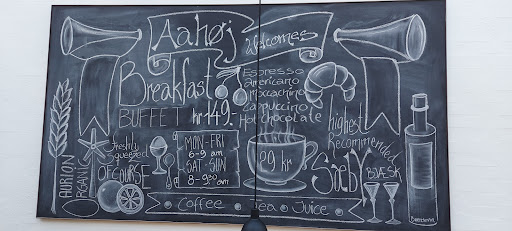 Aahøj Welcomes
Breakfast
BUFFET kr 149.-
Espresso
americano
moccachino
Cappuccino
Hot chocolate
highest
Recommended
Sæby
AURION
ORGANIC
Freshly
Squeezed
OFCOURSE
MON-FRI
6-9 am
SAT-SUN
8-930 am
29 kr
Coffee Tea Juice